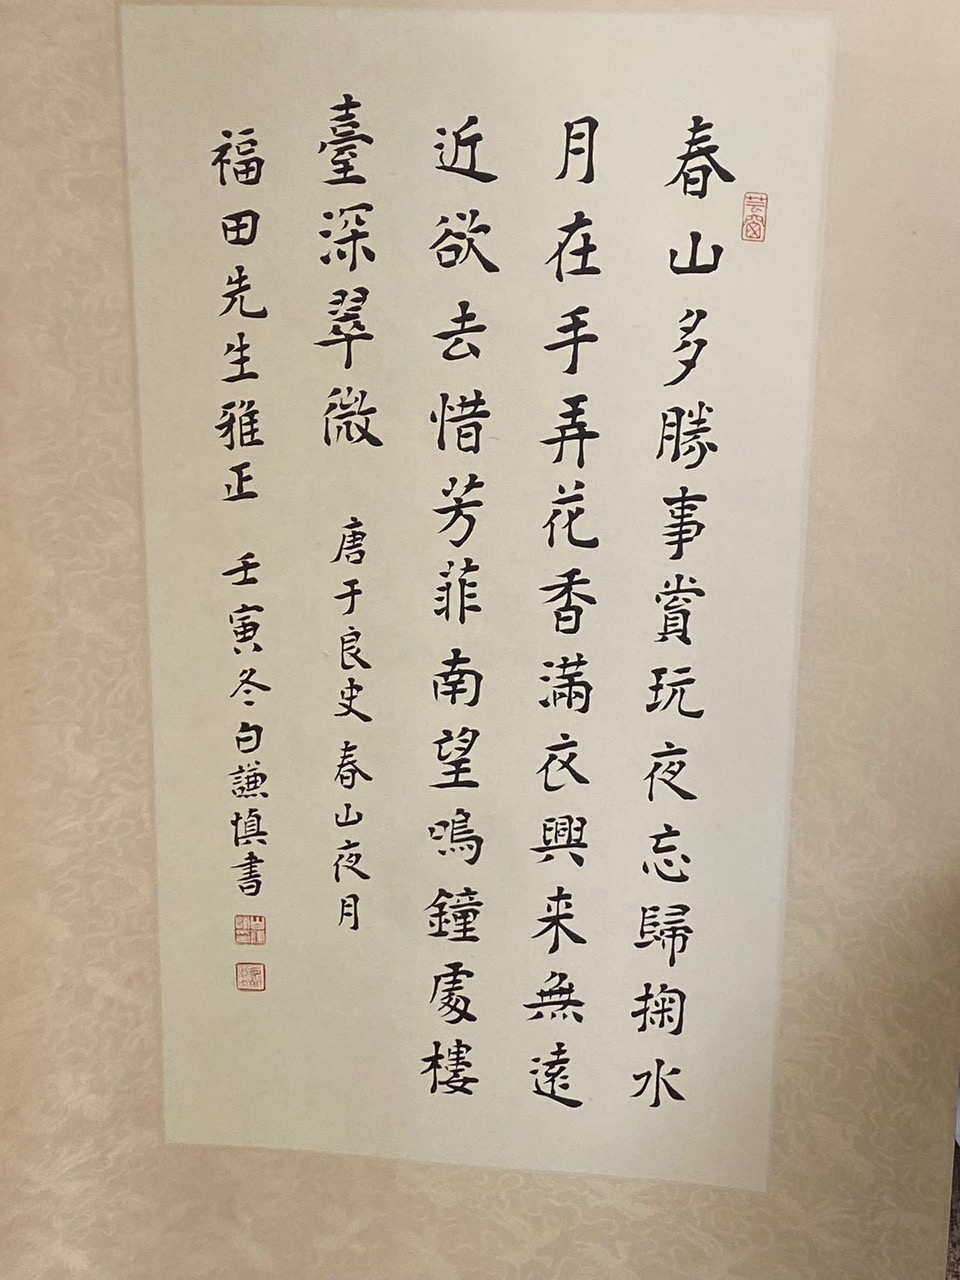 春山多勝事賞玩夜忘歸掬水
月在手弄花香滿衣興来無遠
近欲去惜芳菲南望鳴鐘處樓
臺深翠微 唐于良史春山夜月
福田先生雅正 壬寅冬白謙慎書
芸窗